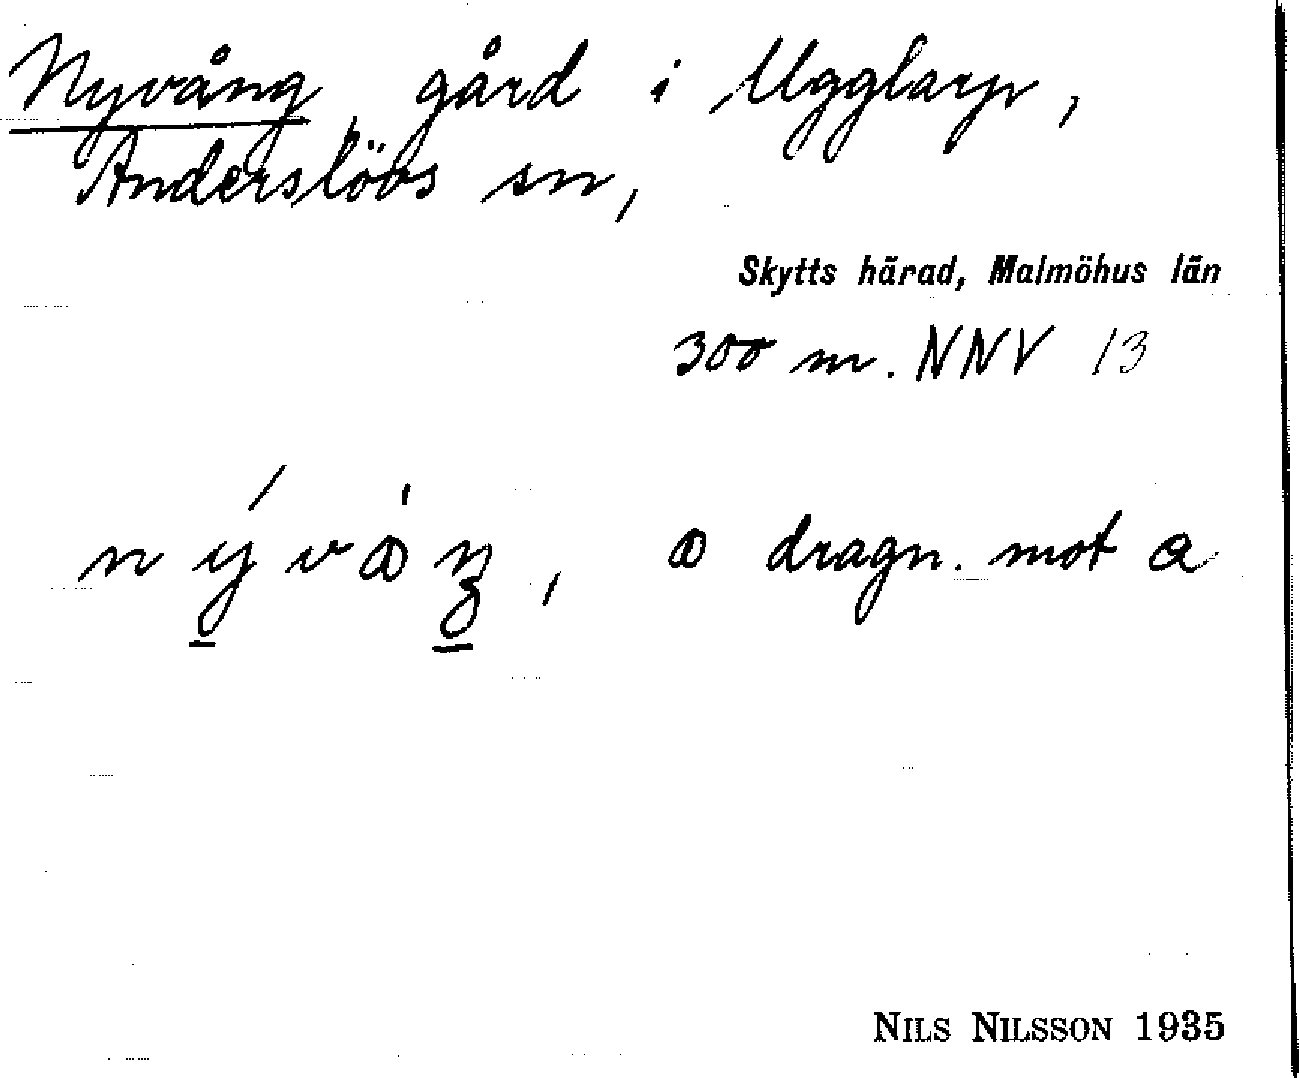 Nyvång gård i Ugglarp,
Anderslövs sn,
Skytts härad, Malmöhus län
300 m. NNV 13
nývꜵŋ, ꜵ dragn. mot a
NILS NILSSON 1935